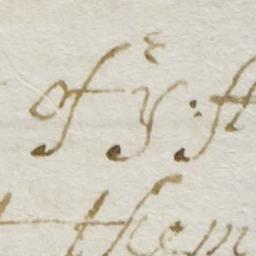 of yᵉ
them